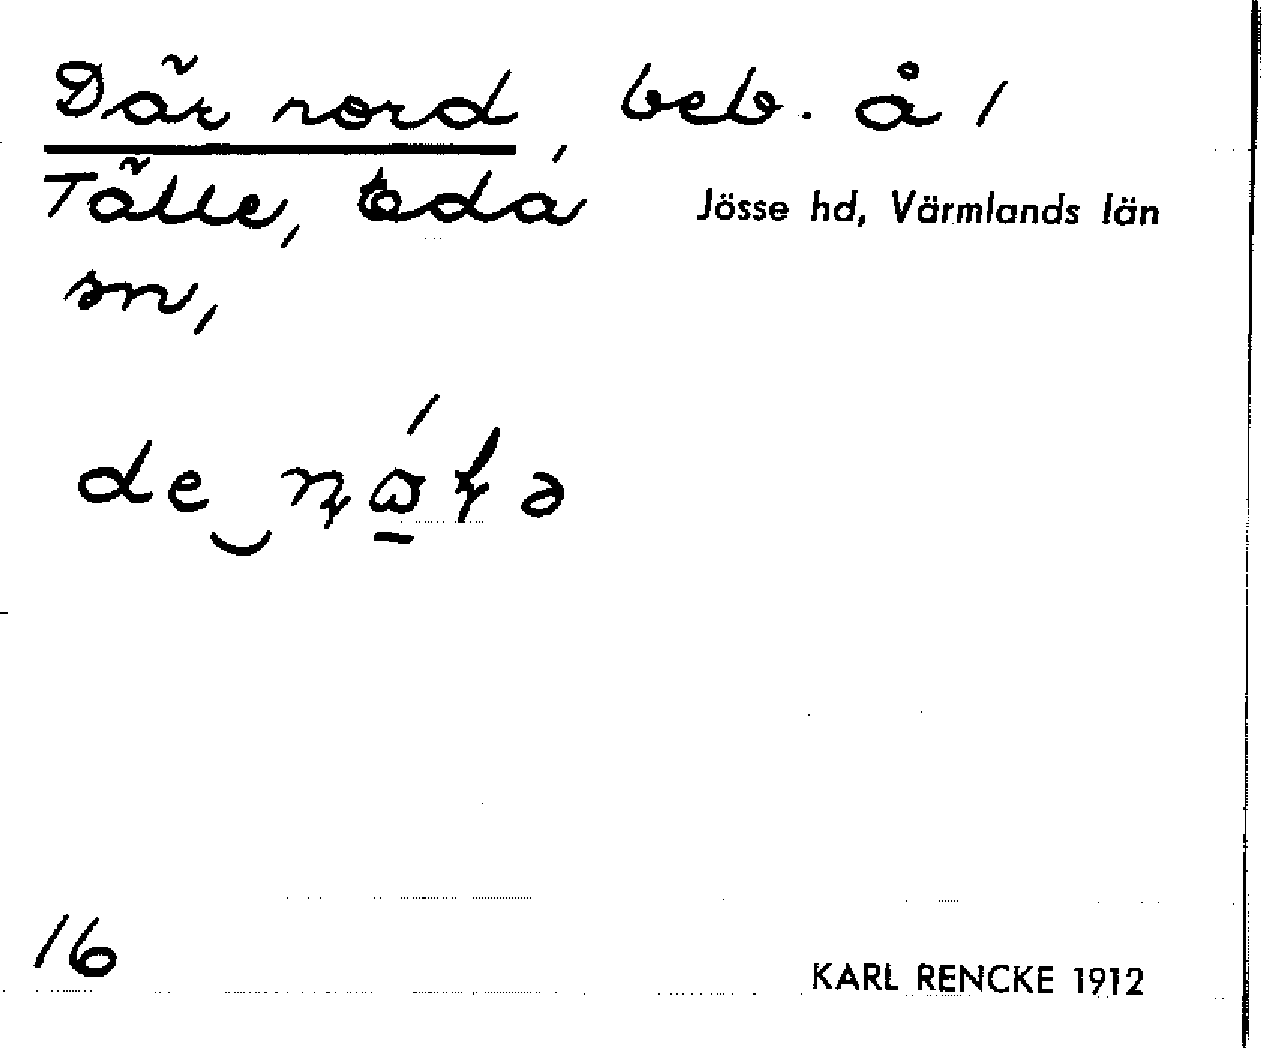 Där nord beb. å 1
Tälle, Eda Jösse hd, Värmlands län
sn,
16
KARL RENCKE 1912